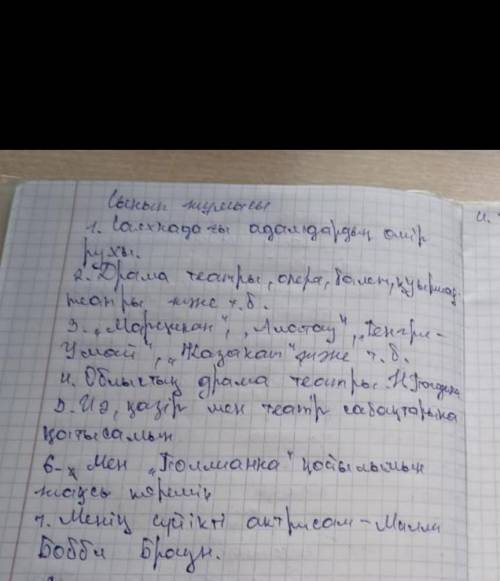 Сынып жұмысы
1. Сахнадағы адамдардың өмір
рухы.
2. Драма театры, опера, балет, қуыршақ
театры және т.б.
3. „Марципан", „Алатау", „Тенгри-
Умай", „Жазакат" және т.б.
4. Облыстық драма театры.
5. Иә, қазір мен театр сабақтарына
қатысамын
6. Мен „Поллианна" қойылымын
жақсы көремін
7. Менің сүйікті актрисам - Милли
Бобби Браун.